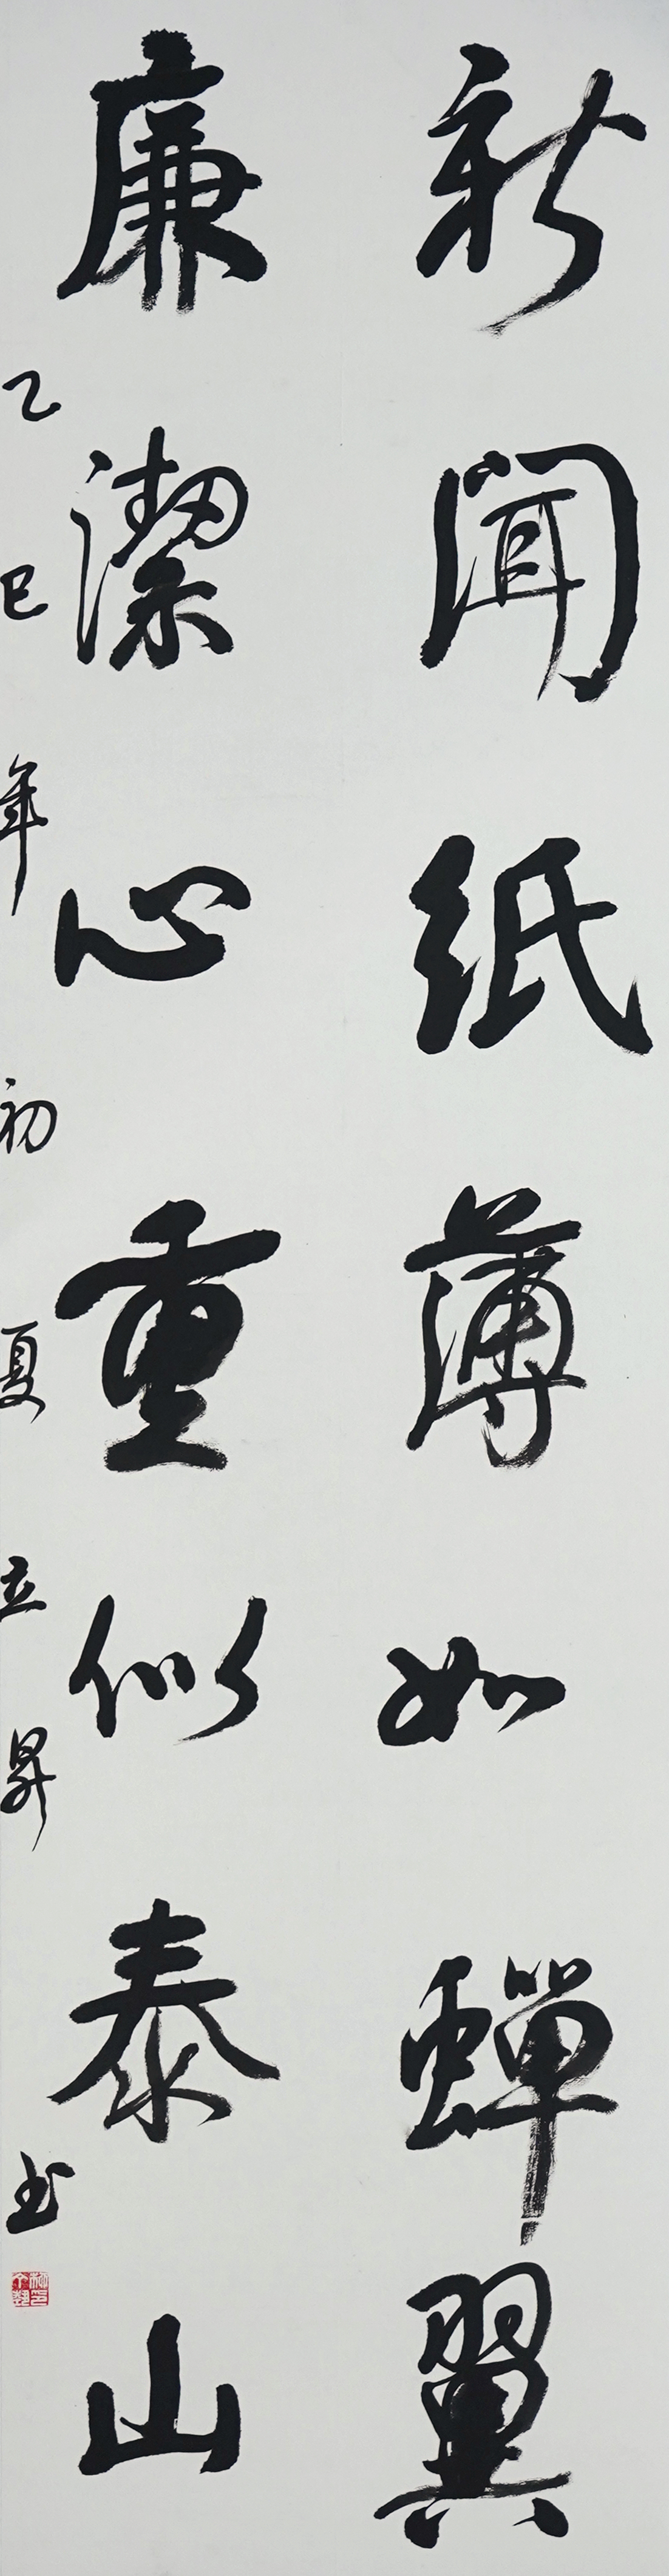 新聞紙薄如蟬翼
廉潔心重似泰山
乙巳年初夏立昇书